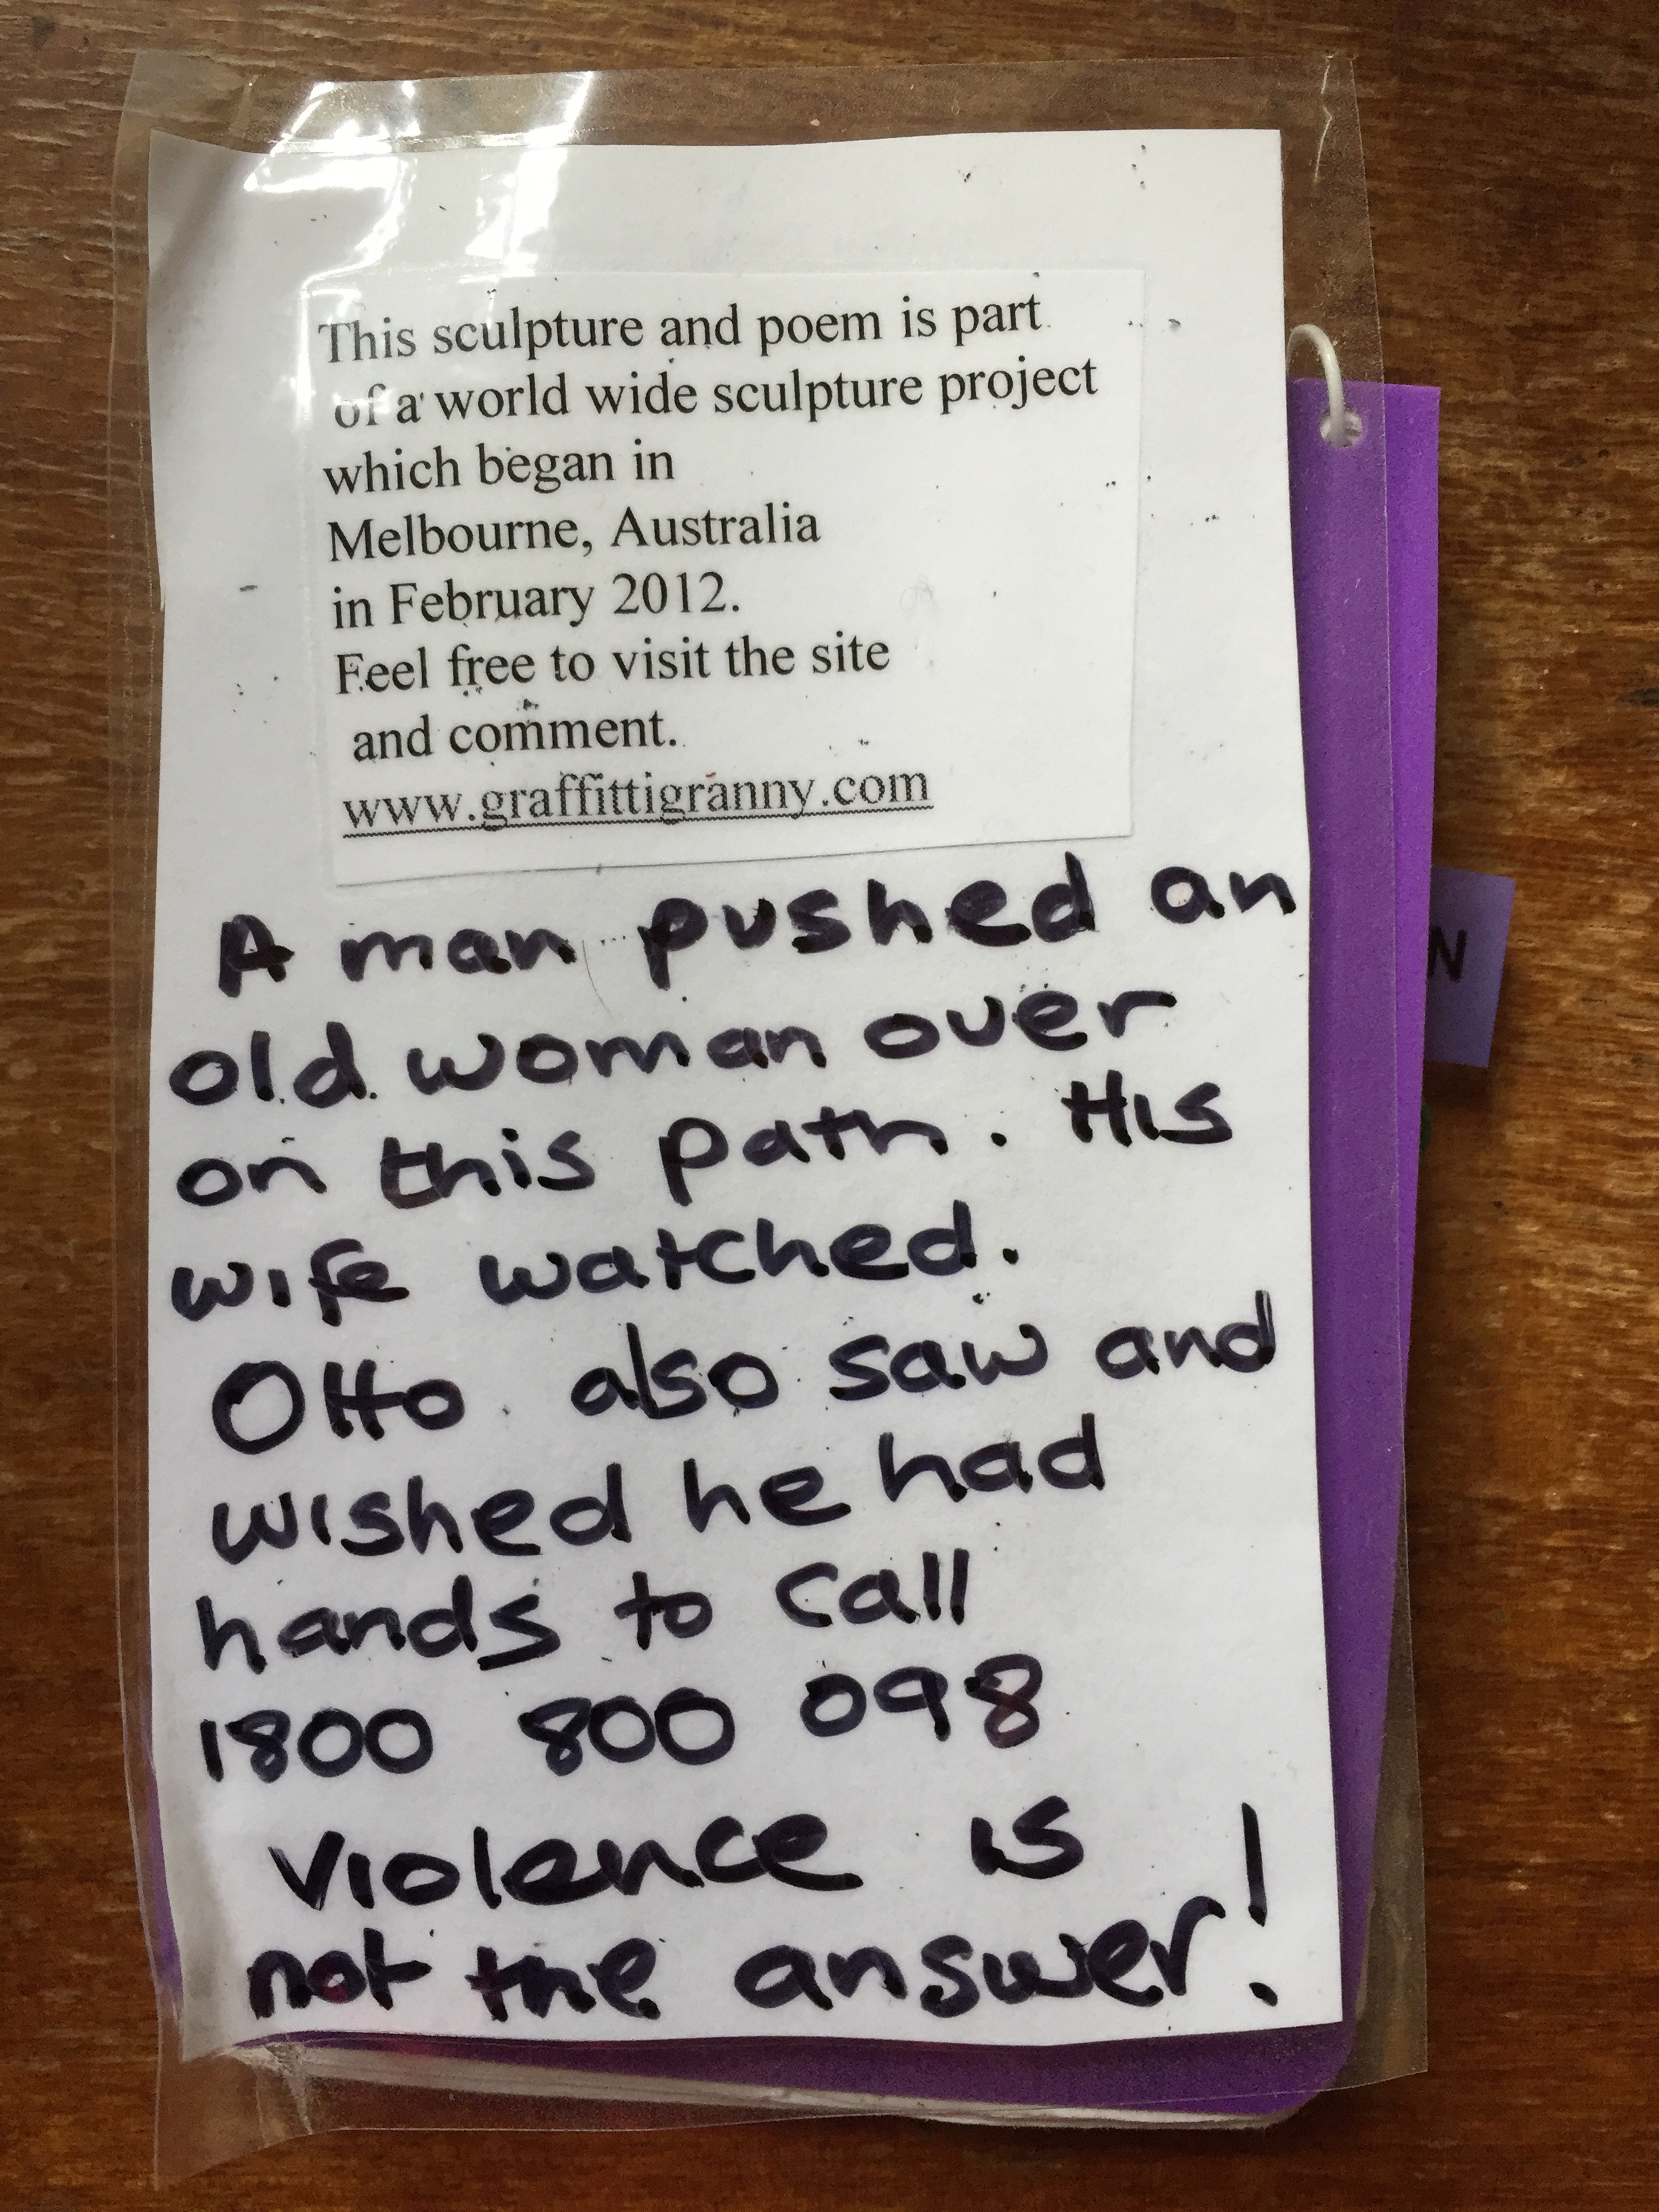 This sculpture and poem is part
of a world wide sculpture project
which began in
Melbourne, Australia
in February 2012.
Feel free to visit the site
and comment.
www.graffittigranny.com
A man pushed an
old woman over
on this path. His
wife watched.
Otto also saw and
wished he had
hands to call
1800 800 098
Violence is
not the answer!
N